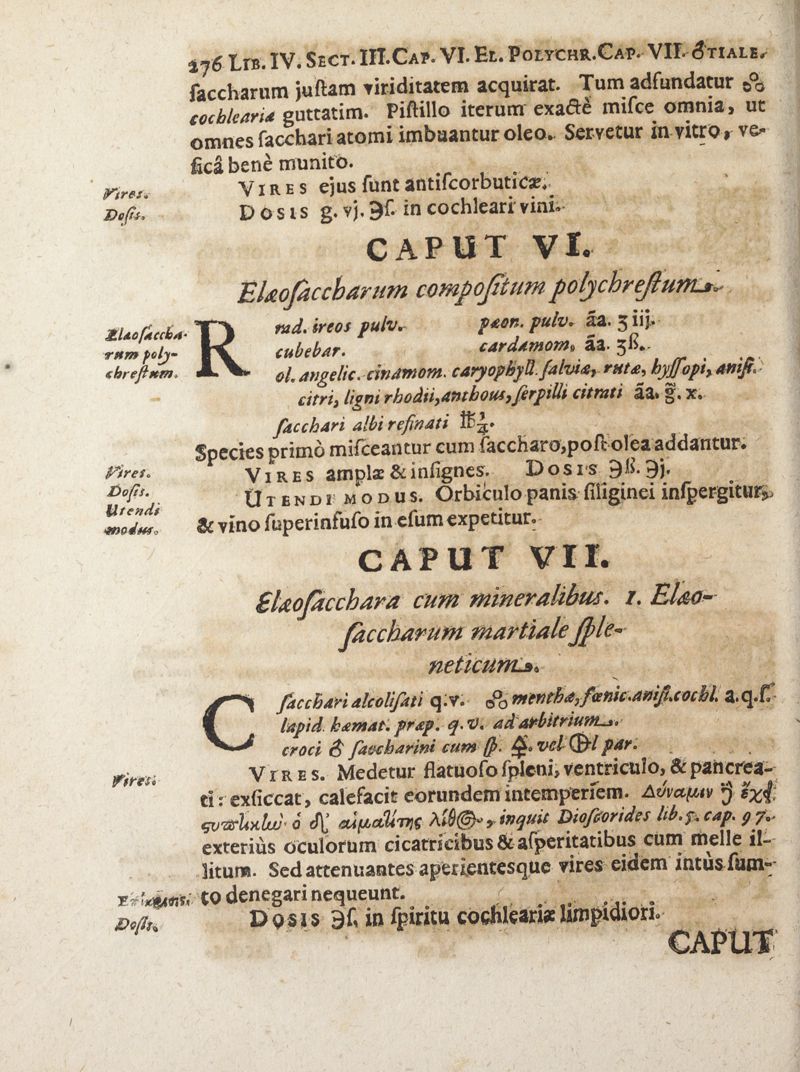 276 LIB. IV. SECT. III. CAP. VI. EL. POLYCHR. CAP. VII. ♂TIALE.
ſaccharum juſtam viriditatem acquirat. Tum adfundatur
cochleariæ guttatim. Piſtillo iterum exactè miſce omnia, ut
omnes ſacchari atomi imbuantur oleo. Servetur in vitro, ve-
ſicâ benè munito.
Vires.
VIRES ejus ſunt antiſcorbuticæ.
Doſis.
DOSIS g. vj. ℈ſ. in cochleari vini.
CAPUT VI.
Elæoſaccharum compoſitum polychreſtum.
Elæoſaccha-
rum poly-
chreſtum.
R rad. ireos pulv. pæon. pulv. āa. ʒ iij.
cubebar. cardamom. āa. ʒß.
ol. angelic. cinamom. caryophyll. ſalviæ, rutæ, hyſſopi, aniſi.
citri, ligni rhodii, anthous, ſerpilli citrati āa. g. x.
ſacchari albi refinati ℔½.
Species primò miſceantur cum ſaccharo, poſt olea addantur.
Vires.
VIRES amplæ & inſignes. DOSIS ℈ß. ℈j.
Doſis.
Utendi
modus.
UTENDI MODUS. Orbiculo panis ſiliginei inſpergitur,
& vino ſuperinfuſo in eſum expetitur.
CAPUT VII.
Elæoſacchara cum mineralibus. 1. Elæo-
ſaccharum martiale ſple-
neticum.
C ſacchari alcoliſati q. v. menthæ, fœnic. aniſi. cochl. a. q. ſ.
lapid. hæmat. præp. q. v. ad arbitrium.
croci ♂ ſaccharini cum vel par.
Vires.
VIRES. Medetur flatuoſo ſpleni, ventriculo, & pancrea-
ti: exſiccat, calefacit eorundem intemperiem. Δύναμιν ἔχει
ὁ αἱματίτης λίθος, inquit Dioſcorides lib. 5. cap. 97.
exteriùs oculorum cicatricibus & aſperitatibus cum melle il-
litum. Sed attenuantes aperientesque vires eidem intùs ſum-
to denegari nequeunt.
Doſis.
DOSIS ℈ſ. in ſpiritu cochleariæ limpidiori.
CAPUT